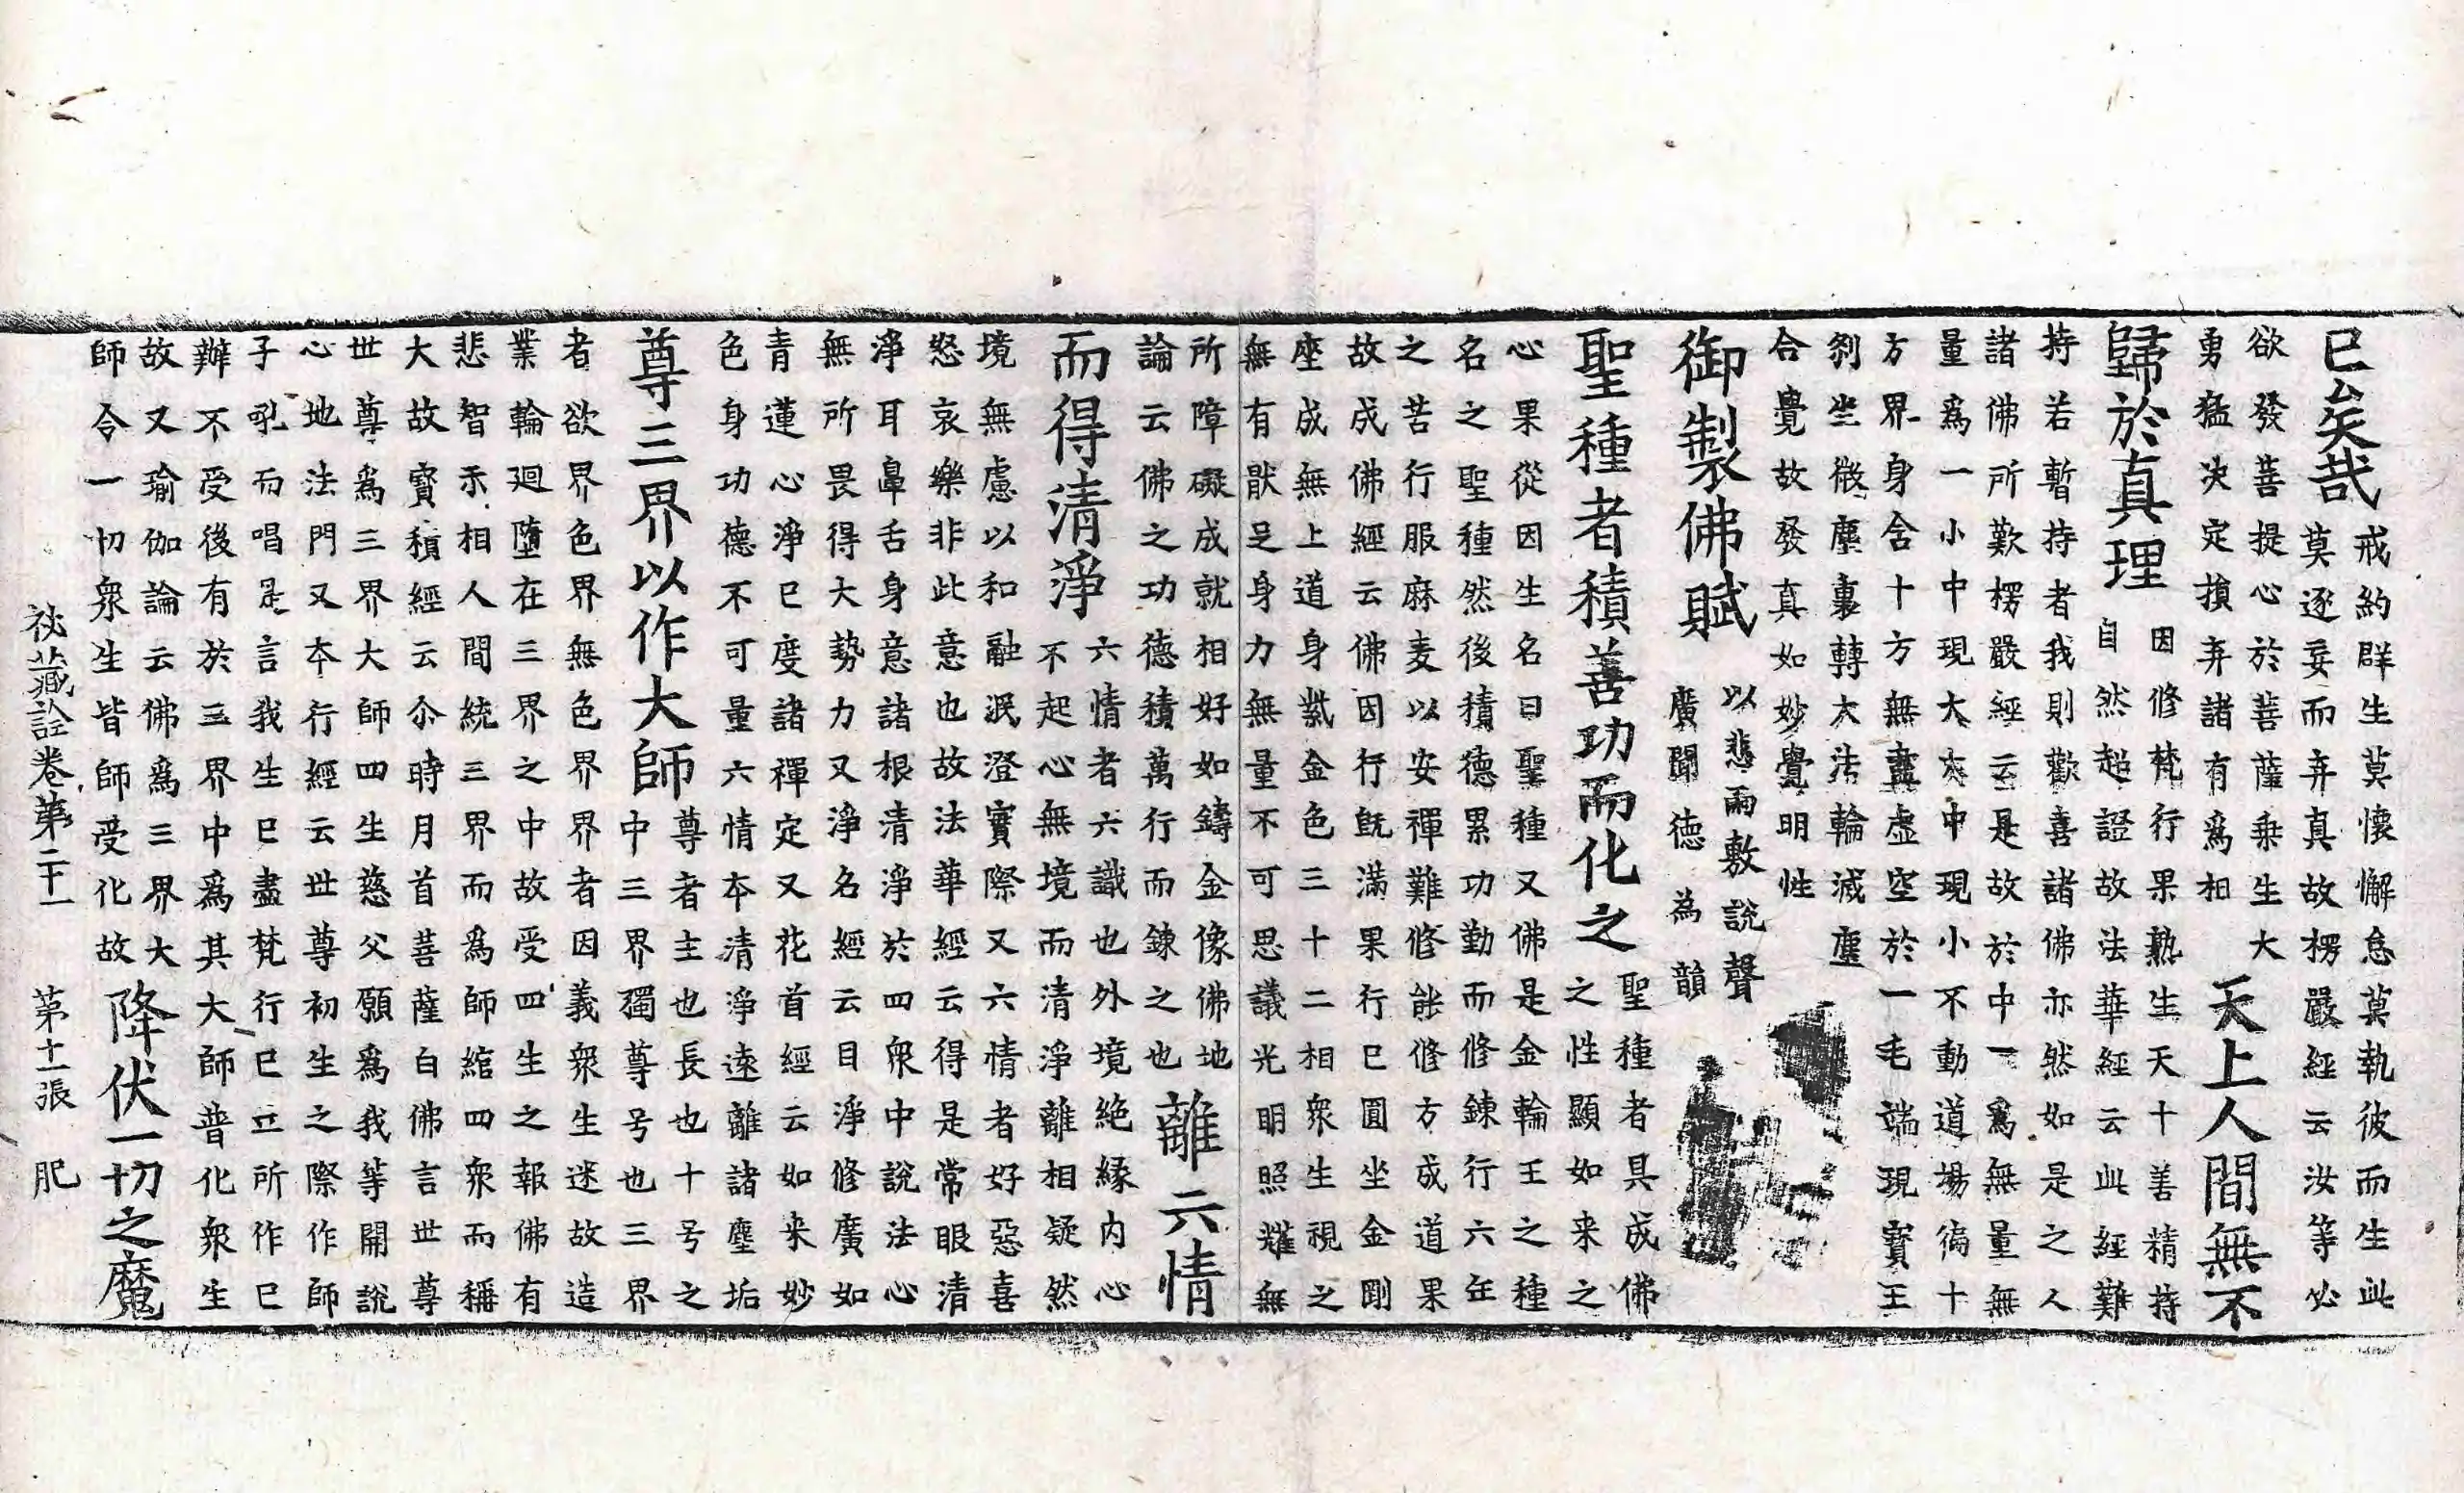 已矣哉
戒約群生莫懷懈怠莫執彼而生此
莫逐妄而弃真故楞嚴經云汝等必
欲發菩提心於菩薩乗生大
勇猛决定損弃諸有爲相
天上人間無不
歸於真理
因修梵行果熟生天十善精持
自然超證故法華經云此經難
持若暫持者我則歡喜諸佛亦然如是之人
諸佛所歎楞嚴經云是故於中一爲無量無
量爲一小中現大大中現小不動道場徧十
方界身含十方無盡虛空於一毛端現寳王
刹坐微塵裏轉大法輪滅塵
合覺故發真如妙覺明性
御製佛賦
以悲雨敷説聲
廣聞德為韻
聖種者積善功而化之
聖種者具成佛
之性顯如来之
心果從因生名曰聖種又佛是金輪王之種
名之聖種然後積德累功勤而修錬行六年
之苦行服麻麦以安禪難修能修方成道果
故成佛經云佛因行旣滿果行已圓坐金剛
座成無上道身紫金色三十二相衆生視之
無有猒足身力無量不可思議光明照耀無
所障礙成就相好如鑄金像佛地
論云佛之功德積萬行而錬之也
離六情
而得清淨
六情者六識也外境絶縁内心
不起心無境而清淨離相疑然
境無慮以和融泯澄實際又六情者好惡喜
怒哀樂非此意也故法華經云得是常眼清
淨耳鼻舌身意諸根清淨於四衆中說法心
無所畏得大勢力又淨名經云目淨修廣如
青蓮心淨已度諸禪定又花首經云如来妙
色身功德不可量六情本清淨逺離諸塵垢
尊三界以作大師
尊者主也長也十号之
中三界獨尊号也三界
者欲界色界無色界界者因義衆生迷故造
業輪廻墮在三界之中故受四生之報佛有
悲智示相人間統三界而爲師綰四衆而稱
大故寳積經云尒時月首菩薩白佛言世尊
世尊爲三界大師四生慈父願爲我等開說
心地法門又本行經云世尊初生之際作師
子吼而唱是言我生已盡梵行已立所作已
辦不受後有於三界中爲其大師普化衆生
故又瑜伽論云佛爲三界大
師令一切衆生皆師受化故
降伏一切之魔
祕藏詮卷第二十一 第十一張 肥